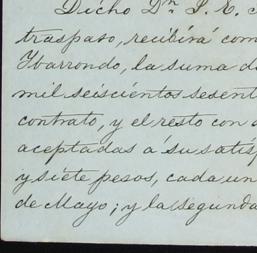 Dicho Dn. P. E.
traspaso, recibirá com
Ybarrondo, la suma d
mil seiscientos sesent
contrato, y el resto con
aceptadas a su satis
y siete pesos, cada un
de Mayo; y la segunda